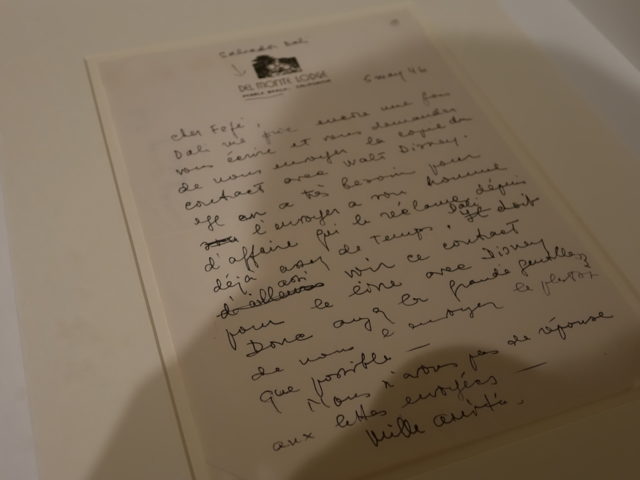 Salvador Dali
DEL MONTE LODGE
PEBBLE BEACH, CALIFORNIA
5 may 46
cher Fefé,
Dali me prie encore une fois
vous écrire et vous demander
de nous envoyer la copie du
contract avec Walt Disney.
Il en a très besoin pour
l'envoyer a son homme
d'affaire qui le réclame dépuis
déjà assez de temps. Dali Il doit
d'ailleurs aussi voir ce contract
pour le livre avec Disney
Donc ayez la grande gentillesse
de nous l'envoyer le plutot
que possible —
Nous n'avons pas de réponse
aux lettes envoyées —
Mille amitiés.